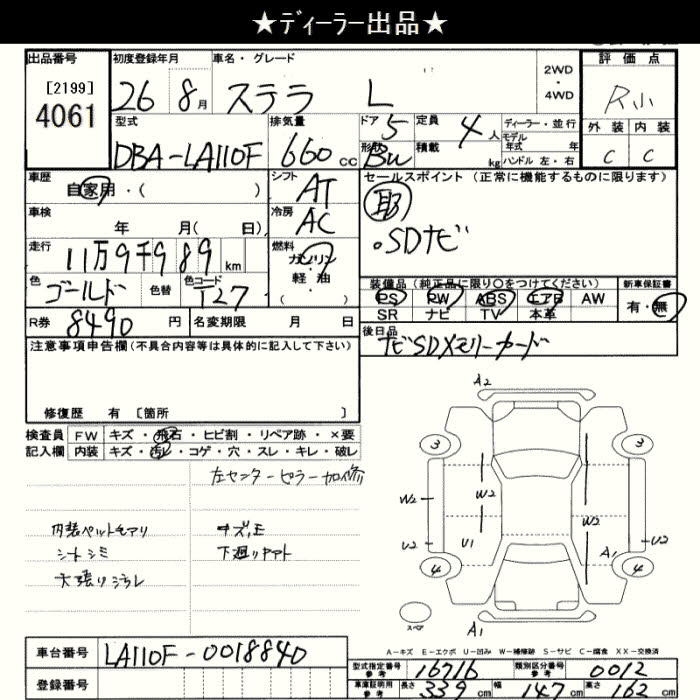 ★ディーラー出品★
出品番号 初度登録年月 車名・グレード 2WD・4WD 評価点
[2199] 4061 26 8月 ステラ L R小
型式 排気量 ドア 5 定員 4人 ディーラー・並行 外装 内装
DBA-LA110F 660cc 形状 Bu 積載 kg モデル年式 年 ハンドル 左・右 C C
車歴 自家用・( ) シフト AT セールスポイント (正常に機能するものに限ります)
車検 年 月( 日) 冷房 AC
走行 11万9千989km 燃料 ガソリン・軽油・( ) ・SDナビ
色 ゴールド 色替 色コード T27 装備品 (純正品に限り○をつけてください) 新車保証書
PS PW ABS エアB AW 有・無
SR ナビ TV 本革
R券 8490円 名変期限 月 日 後日品
ナビSDメモリーカード
注意事項申告欄(不具合内容等は具体的に記入して下さい)
修復歴 有 [箇所 ]
検査員 FW キズ・飛石・ヒビ割・リペア跡・×要
記入欄 内装 キズ・汚レ・コゲ・穴・スレ・キレ・破レ
左センターピラー加修
内装ペットモアリ キズ,エ
シートシミ 下廻りヤケト
天張りシラレ
A2
3 3
W2 W2 W2
U2 U1 A1 U2
4 4
スペア A1
A-キズ E-エクボ U-凹み W-補修跡 S-サビ C-腐食 XX-交換済
車台番号 LA110F-0018840
登録番号
型式指定番号 参考 16716 類別区分番号 参考 0012
車庫証明用 参考 長さ 339cm 幅 147cm 高さ 162cm